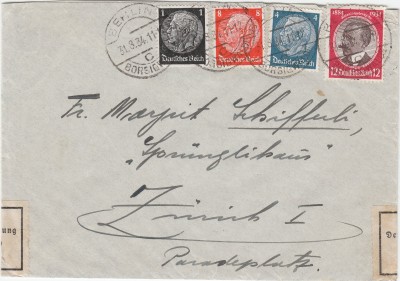 BERLIN
31.8.34.11
C
BORSIG
1
Deutsches Reich
8
Deutsches Reich
4
Deutsches Reich
1884 1934
12 Deutsches Reich 12
Fr. Margrit Schiffuli,
„Sprünglihaus"
Zürich I
Paradeplatz.